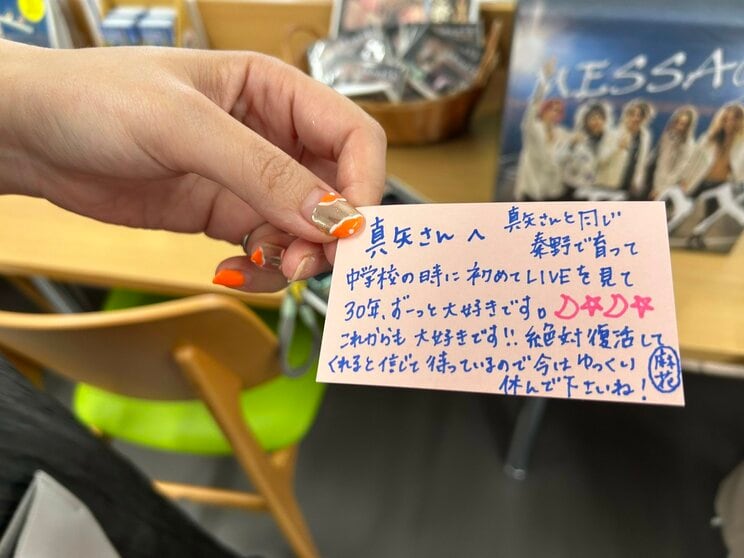 真矢さんへ 真矢さんと同じ
秦野で育って
中学校の時に初めてLIVEを見て
30年、ずーっと大好きです。☽☆☽☆
これからも大好きです!!絶対復活して
くれると信じて待っているので今はゆっくり
休んで下さいね!
麻花
MESSA